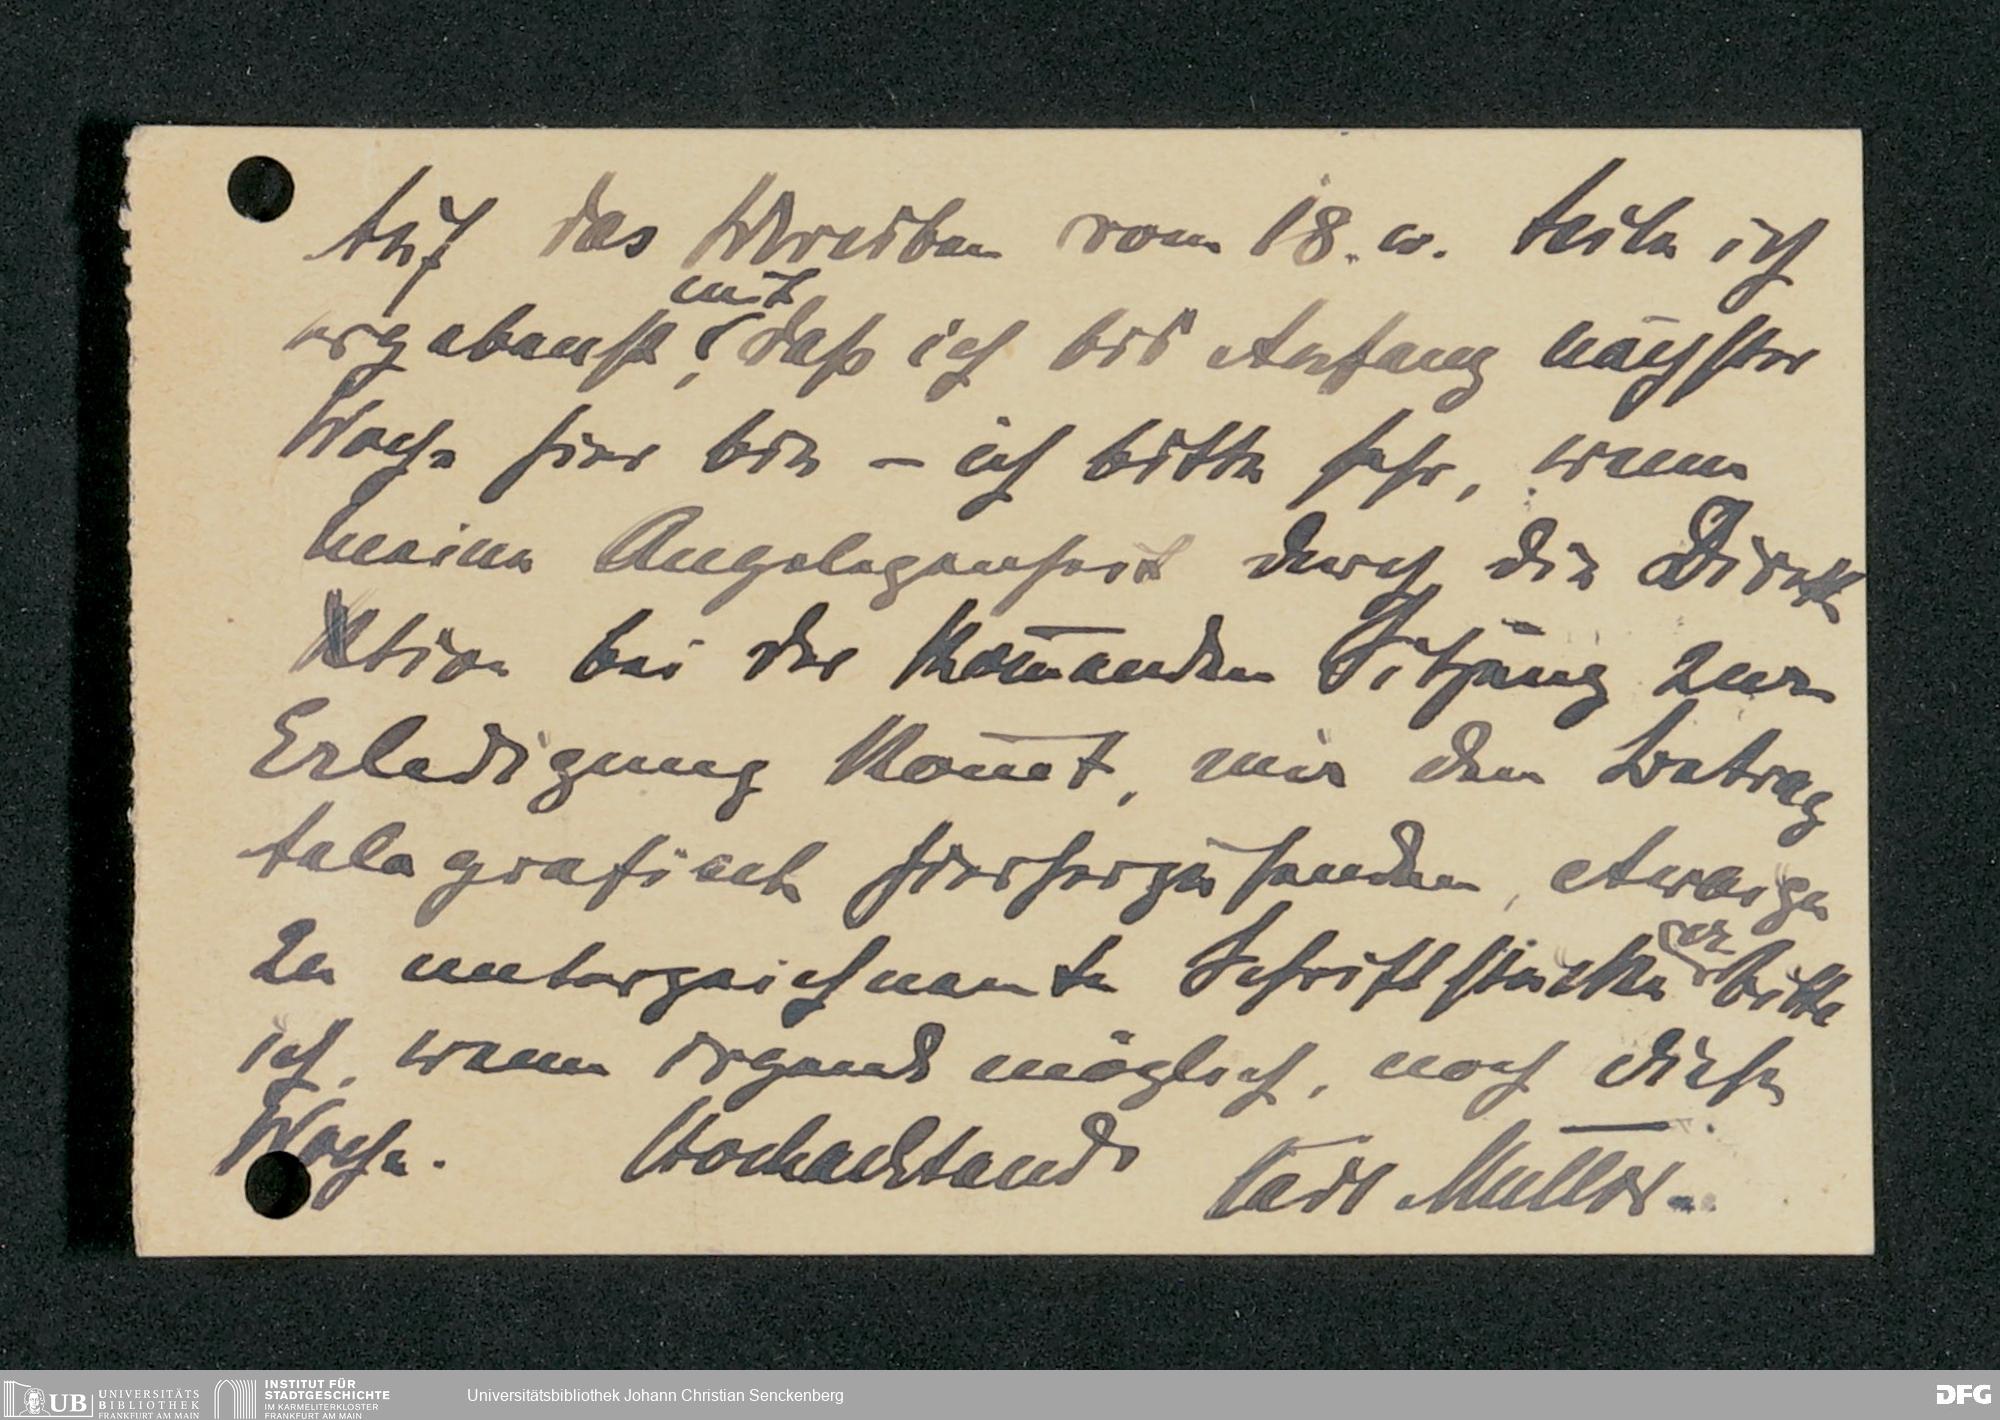 Auf das Schreiben vom 18. cr. teile ich
mit
ergebenst, daß ich bis Anfang nächster
Woche hier bin – ich bitte sehr, wenn
meine Angelegenheit durch die Direk
ktion bei der kom̅enden Sitzung zur
Erledigung kom̅t, mir den Betrag
telegrafisch hierherzusenden, etwaige
zu unterzeichnente Schriftstücke er bitte
ich, wenn irgend möglich, noch diese
Woche. Hochachtend Carl Müller.
UB UNIVERSITÄTS
BIBLIOTHEK
FRANKFURT AM MAIN
INSTITUT FÜR
STADTGESCHICHTE
IM KARMELITERKLOSTER
FRANKFURT AM MAIN
Universitätsbibliothek Johann Christian Senckenberg
DFG